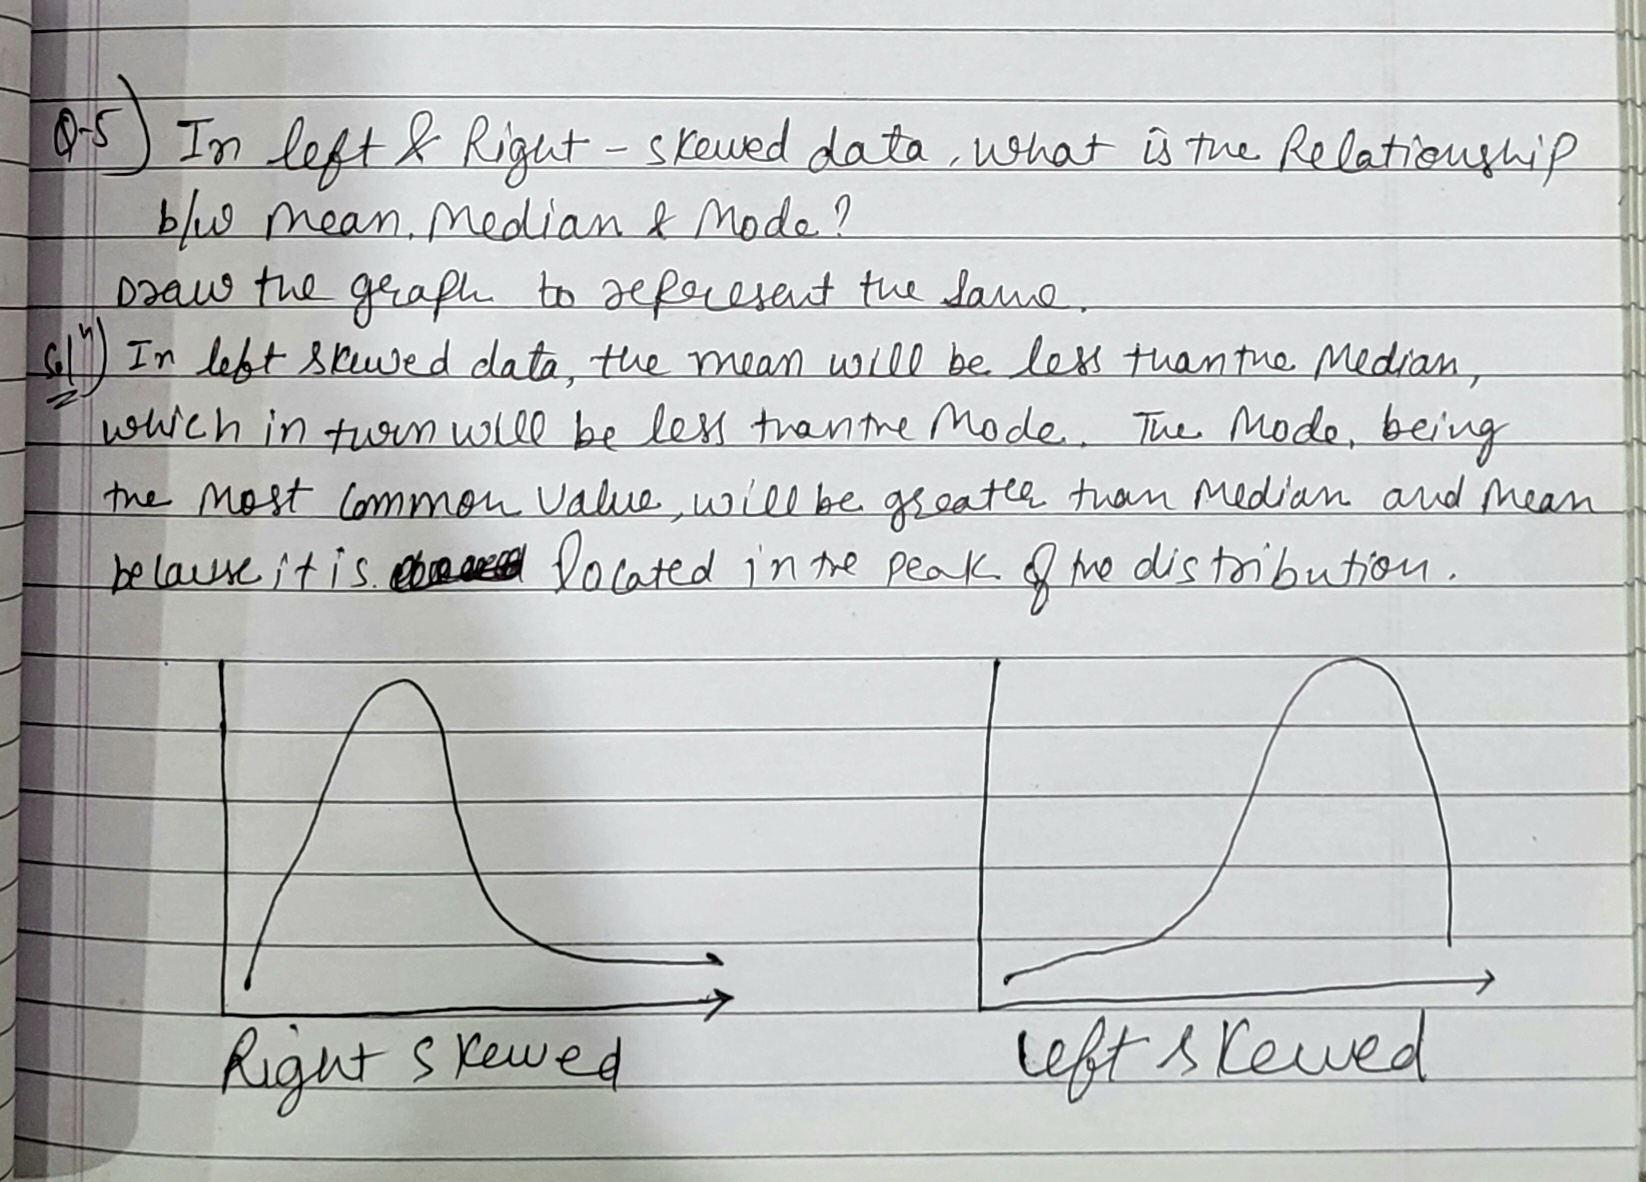 Q-5) In left & Right - skewed data, what is the Relationship
b/w Mean, Median & Mode?
Draw the graph to represent the same.
Solⁿ) In left skewed data, the mean will be less than the Median,
which in turn will be less than the Mode. The Mode, being
the most common value, will be greater than Median and Mean
because it is located in the peak of the distribution.
Right skewed
left skewed